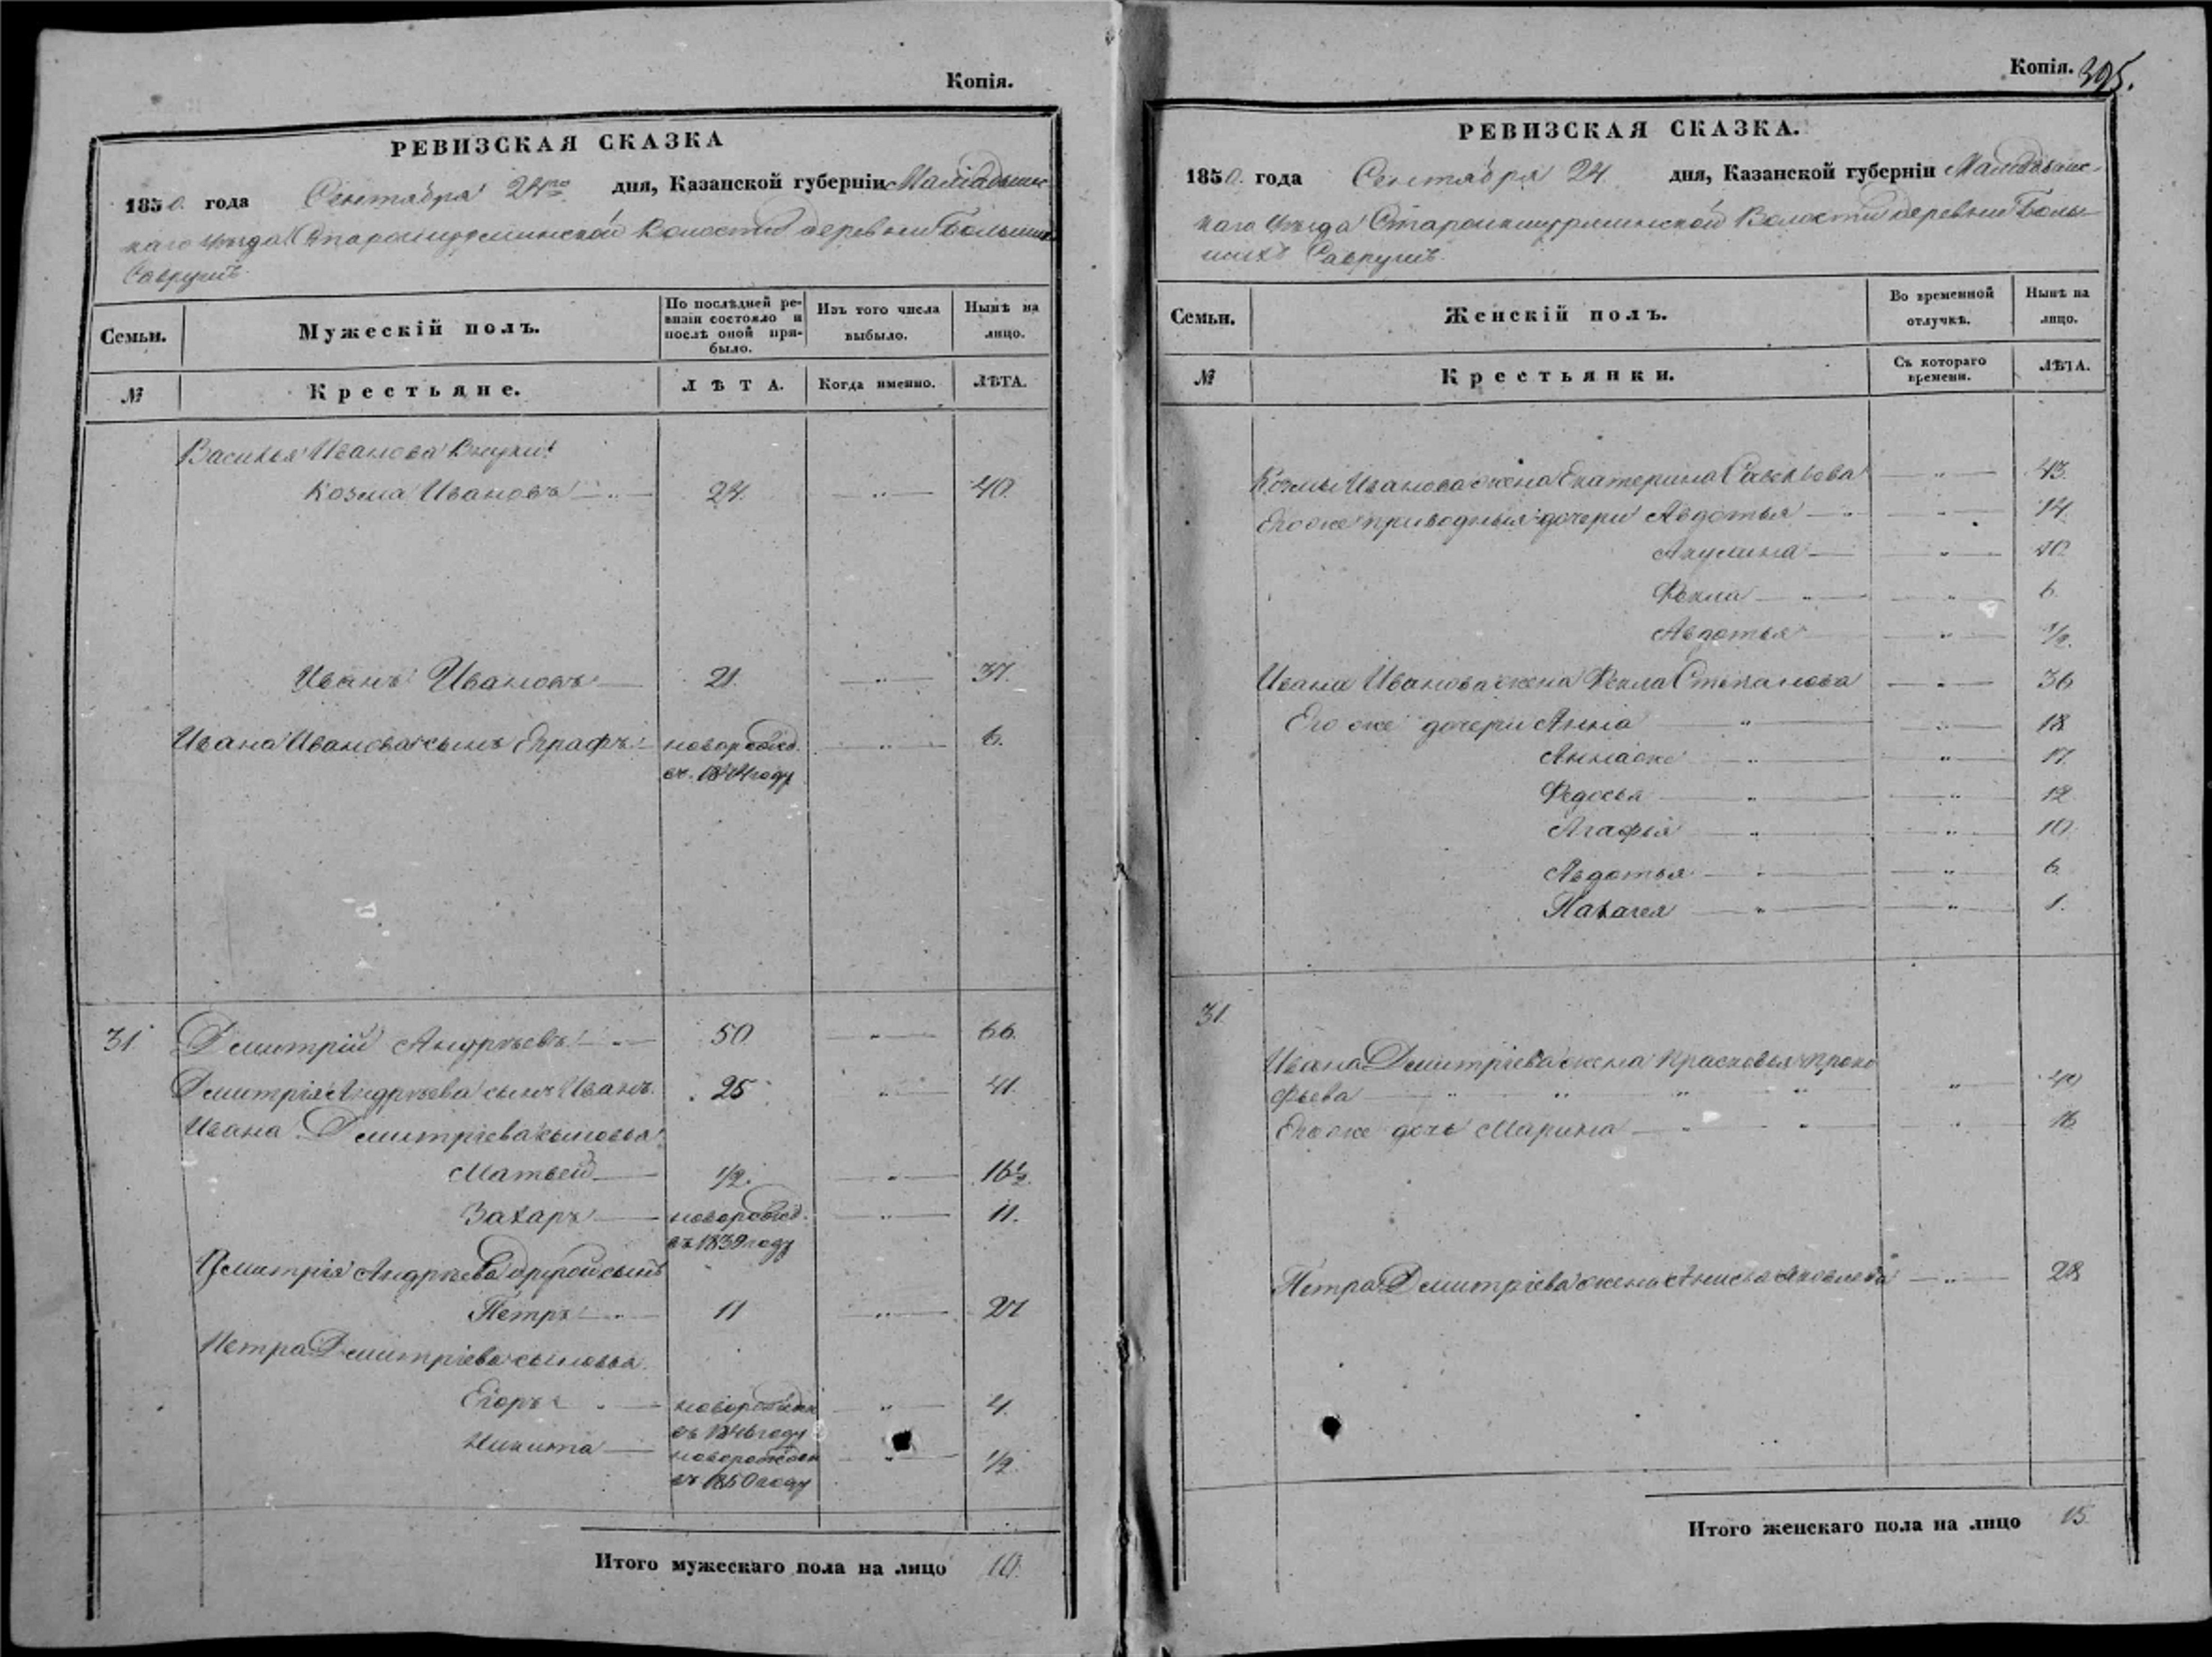 Копія.
РЕВИЗСКАЯ СКАЗКА
1850. года Сентября 24го дня, Казанской губерніи Мамадышс-
каго уѣзда Волости деревни Большихъ
Саврушъ.
Семьи.
Мужескій полъ.
По послѣдней ре-
визіи состояло и
послѣ оной при-
было.
Изъ того числа
выбыло.
Нынѣ на
лицо.
№
Крестьяне.
ЛѢТА.
Когда именно.
ЛѢТА.
Василья Иванова внуки:
Козма Ивановъ — „ — 24. — „ — 40.
Иванъ Ивановъ — 21. — „ — 37.
Ивана Иванова сынъ новорожд. — „ — 6.
въ 1844 году
31. Дмитрій Андрѣевъ — „ — 50 — „ — 66.
Дмитрія Андрѣева сынъ Иванъ. 25 — „ — 41.
Ивана Дмитріева сыновья:
Матвей — 1/2. — „ — 16 1/2
Захаръ — новорожд. — „ — 11.
въ 1839 году
Дмитрія Андрѣева другой сынъ
Петръ — „ — 11 — „ — 27
Петра Дмитріева сыновья
Егоръ „ — новорожден — „ — 4.
въ 1846 году
Никита — новорожден — „ — 1/2.
въ 1850 году
Итого мужескаго пола на лицо 10.
Копія. 395.
РЕВИЗСКАЯ СКАЗКА.
1850. года Сентября 24. дня, Казанской губерніи Мамадышс-
каго уѣзда Волости деревни Боль-
шихъ Саврушъ.
Семьи.
Женскій полъ.
Во временной
отлучкѣ.
Нынѣ на
лицо.
№
Крестьянки.
Съ котораго
времени.
ЛѢТА.
Козмы Иванова жена Екатерина Савельова — „ — 43.
Его же приводныя дочери Авдотья — „ — „ — 14.
Акулина — — „ — 10.
Фекла — „ — — „ — 6.
Авдотья — — „ — 1/2.
Ивана Иванова жена Фекла Степанова — „ — 36
Его же дочери Анна — „ — — „ — 18
Анна же — „ — — „ — 17.
Федосья — „ — — „ — 12
Агафья — „ — — „ — 10.
Авдотья — „ — — „ — 6
Палагея — „ — — „ — 1.
31.
Ивана Дмитріева жена Прасковья Проко
фьева — „ „ „ „ — „ — 40
Его же дочь Марина — „ — „ — „ — 16
Петра Дмитріева жена Анисья Яковлева — „ — 28
Итого женскаго пола на лицо 15.